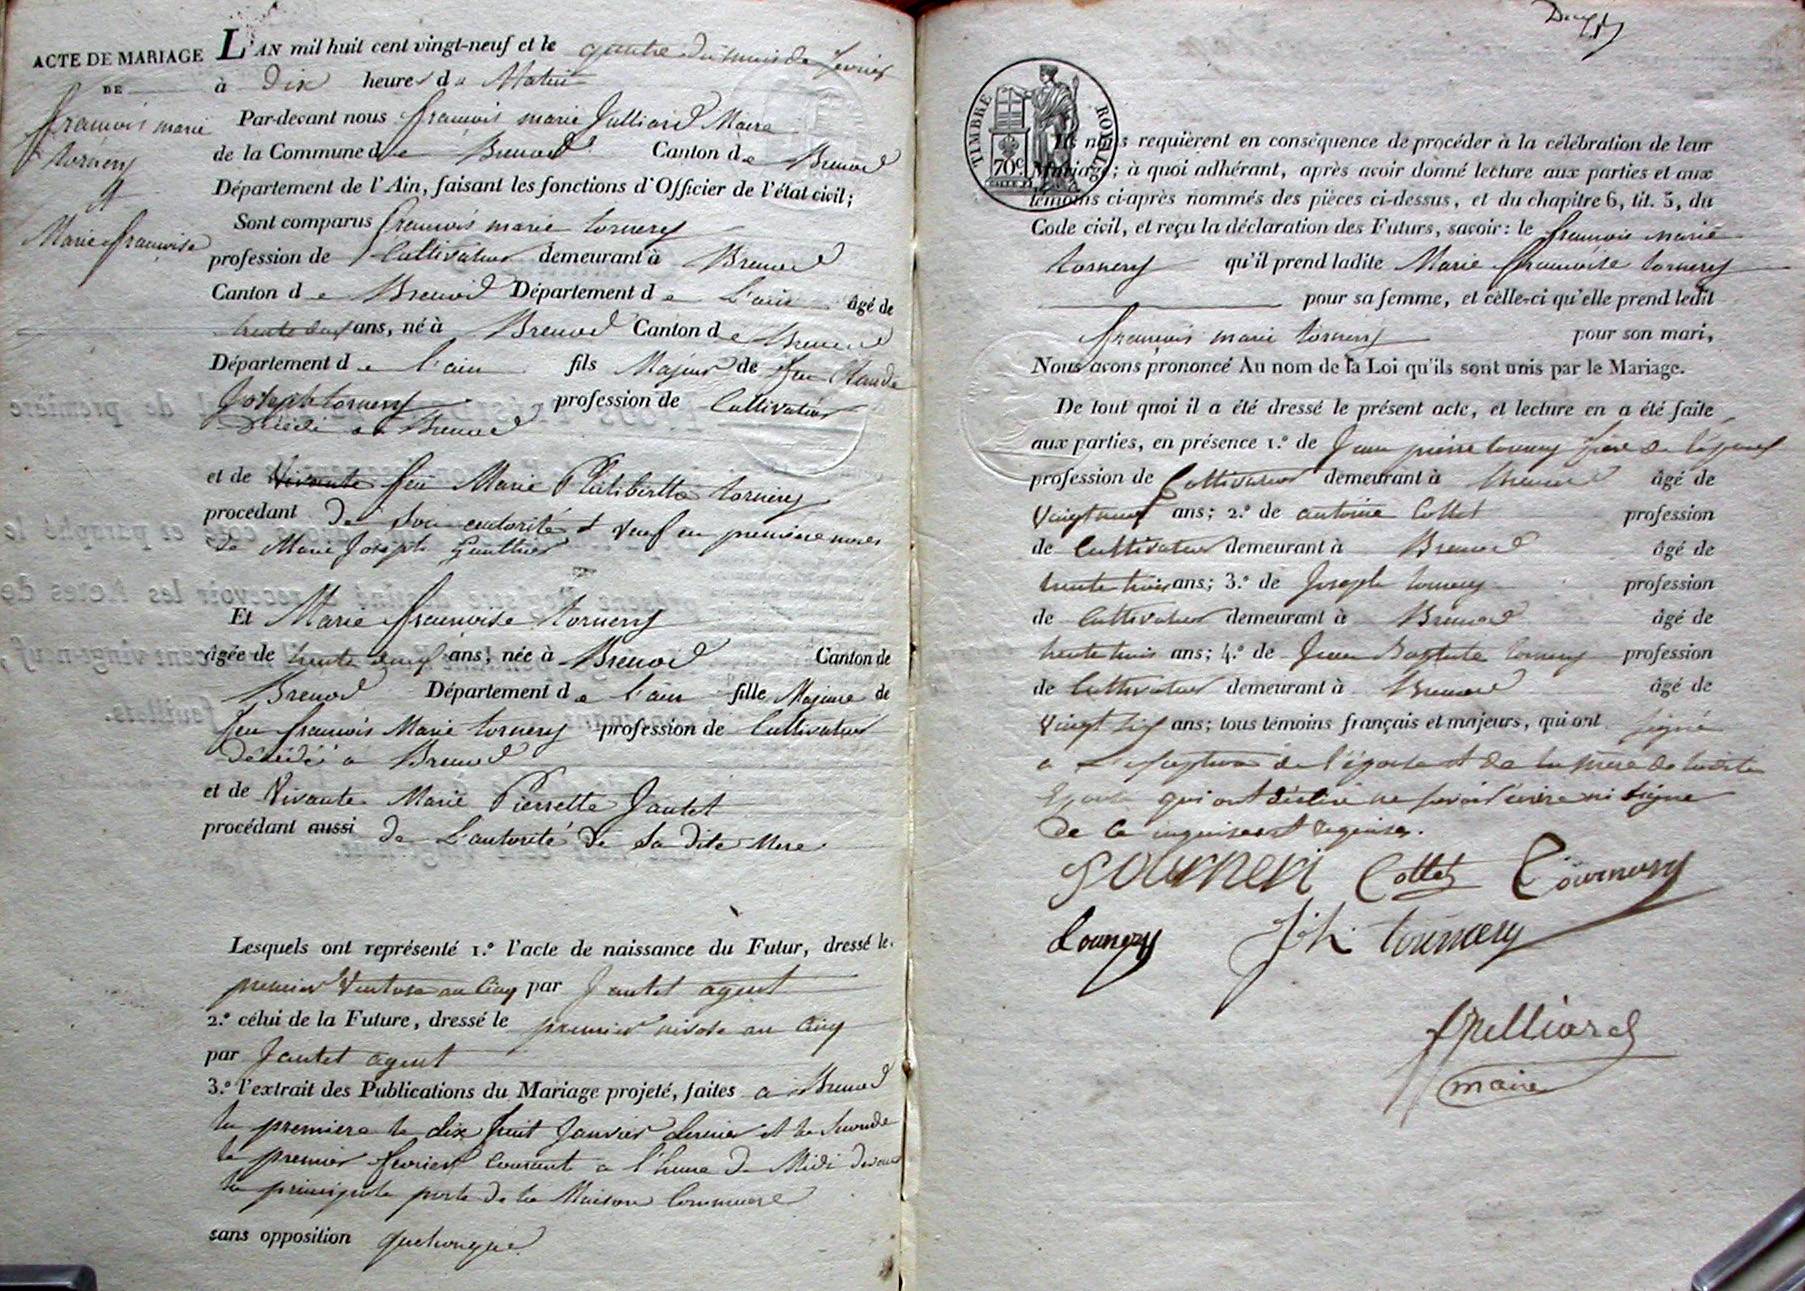 ACTE DE MARIAGE
DE
françois marie
tornery
et
Marie françoise
L'AN mil huit cent vingt-neuf et le quatre du mois de fevrier
à Dix heures du Matin
Par-devant nous françois marie Julliard Maire
de la Commune de Brenod Canton de Brenod
Département de l'Ain, faisant les fonctions d'Officier de l'état civil;
Sont comparus françois marie tornery
profession de Cultivateur demeurant à Brenod
Canton de Brenod Département de L'ain âgé de
trente deux ans, né à Brenod Canton de Brenod
Département de l'ain fils Majeur de feu Claude
Joseph tornery profession de Cultivateur
Décédé à Brenod
et de Vivante feu Marie Philiberthe tornery
procédant de son autorité et veuf en premiere noces
de Marie Joseph Gauthier
Et Marie françoise tornery
âgée de trente deux ans, née à Brenod Canton de
Brenod Département de l'ain fille Majeure de
feu francois Marie tornery profession de Cultivateur
Décédé à Brenod
et de Vivante Marie Pierrette Jantet
procédant aussi de L'autorité de Sa dite Mere
Lesquels ont représenté 1.º l'acte de naissance du Futur, dressé le
premier Ventose an Cinq par Jantet agent
2.º célui de la Future, dressé le premier nivose an Cinq
par Jantet agent
3.º l'extrait des Publications du Mariage projeté, faites à Brenod
la premiere le dix huit Janvier dernier et la Seconde
le premier fevrier Courant a l'heure de Midi devant
la principale porte de la Maison Commune
sans opposition quelconque
TIMBRE ROYAL
70c
Ils nous requièrent en conséquence de procéder à la célébration de leur
Mariage; à quoi adhérant, après avoir donné lecture aux parties et aux
témoins ci-après nommés des pièces ci-dessus, et du chapitre 6, tit. 5, du
Code civil, et reçu la déclaration des Futurs, savoir: le françois marie
tornery qu'il prend ladite Marie françoise tornery
pour sa femme, et celle-ci qu'elle prend ledit
françois marie tornery pour son mari,
Nous avons prononcé Au nom de la Loi qu'ils sont unis par le Mariage.
De tout quoi il a été dressé le présent acte, et lecture en a été faite
aux parties, en présence 1.º de Jean pierre tornery frere de l'épouse
profession de Cultivateur demeurant à Brenod âgé de
Vingt neuf ans; 2.º de antoine Collet profession
de Cultivateur demeurant à Brenod âgé de
trente trois ans; 3.º de Joseph tornery profession
de Cultivateur demeurant à Brenod âgé de
trente trois ans; 4.º de Jean Baptiste tornery profession
de Cultivateur demeurant à Brenod âgé de
Vingt six ans; tous témoins français et majeurs, qui ont signé
a L'exception de l'épouse et de la mere de ladite
Epouse qui ont déclaré ne savoir écrire ni signe
de ce inquis et requises.
Collet Tournery
Jph tournery
Julliard
maire